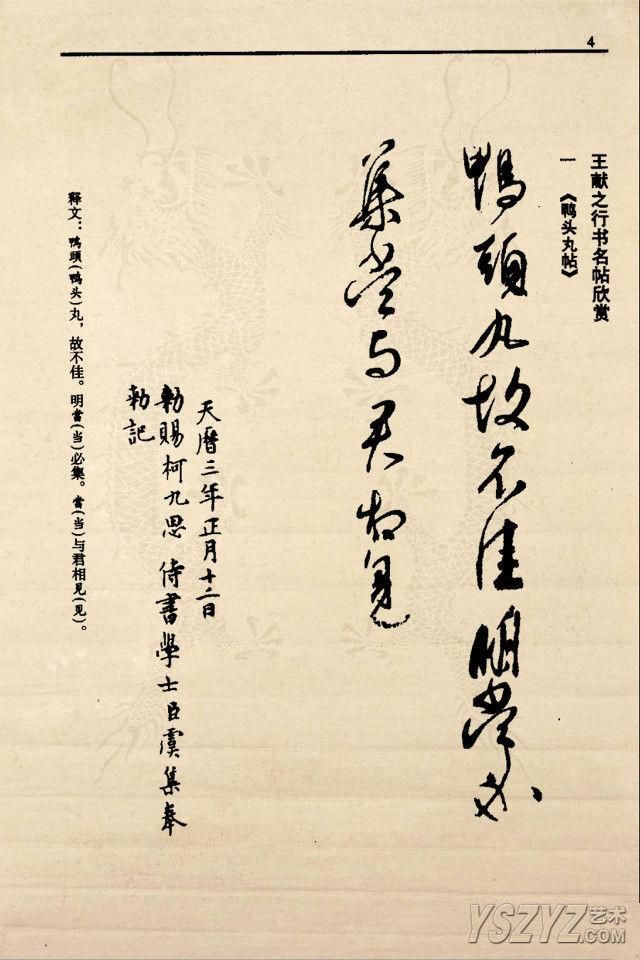 4
王献之行书名帖欣赏
一 《鸭头丸帖》
鴨頭丸故不佳明當必
集當与君相見
天曆三年正月十二日
勑賜柯九思侍書學士臣虞集奉
勑記
释文：鴨頭(鸭头)丸，故不佳。明當(当)必集。當(当)与君相見(见)。
YSZYZ艺术
.COM